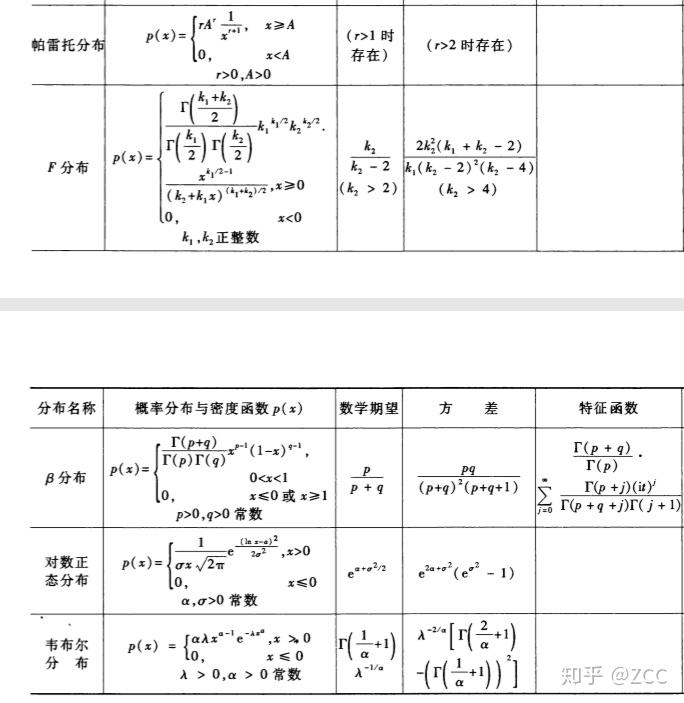 帕雷托分布 p(x)={rA^r 1/x^{r+1}, x≥A
0, x<A
r>0,A>0
(r>1时存在)
(r>2时存在)
F分布 p(x)={Γ((k₁+k₂)/2)/(Γ(k₁/2)Γ(k₂/2)) k₁^{k₁/2}k₂^{k₂/2}·
x^{k₁/2-1}/(k₂+k₁x)^{(k₁+k₂)/2},x≥0
0, x<0
k₁,k₂正整数
k₂/(k₂-2)
(k₂ > 2)
2k₂²(k₁ + k₂ - 2)/(k₁(k₂ - 2)²(k₂ - 4))
(k₂ > 4)
分布名称 概率分布与密度函数p(x) 数学期望 方 差 特征函数
β分布 p(x)={Γ(p+q)/(Γ(p)Γ(q)) x^{p-1}(1-x)^{q-1},
0<x<1
0, x≤0或x≥1
p>0,q>0常数
p/(p + q)
pq/((p+q)²(p+q+1))
Γ(p + q)/Γ(p) ·
∑_{j=0}^{∞} Γ(p + j)(it)^j/(Γ(p + q + j)Γ(j + 1))
对数正态分布 p(x)={1/(σx√(2π)) e^{-(ln x-α)²/(2σ²)},x>0
0, x≤0
α,σ>0常数
e^{α+σ²/2}
e^{2α+σ²}(e^{σ²} - 1)
韦布尔分 布 p(x) ={αλx^{α-1}e^{-λx^α},x >0
0, x ≤ 0
λ > 0,α > 0常数
Γ(1/α+1)
λ^{-1/α}
λ^{-2/α}[Γ(2/α+1)
-(Γ(1/α+1))²]
知乎 @ZCC